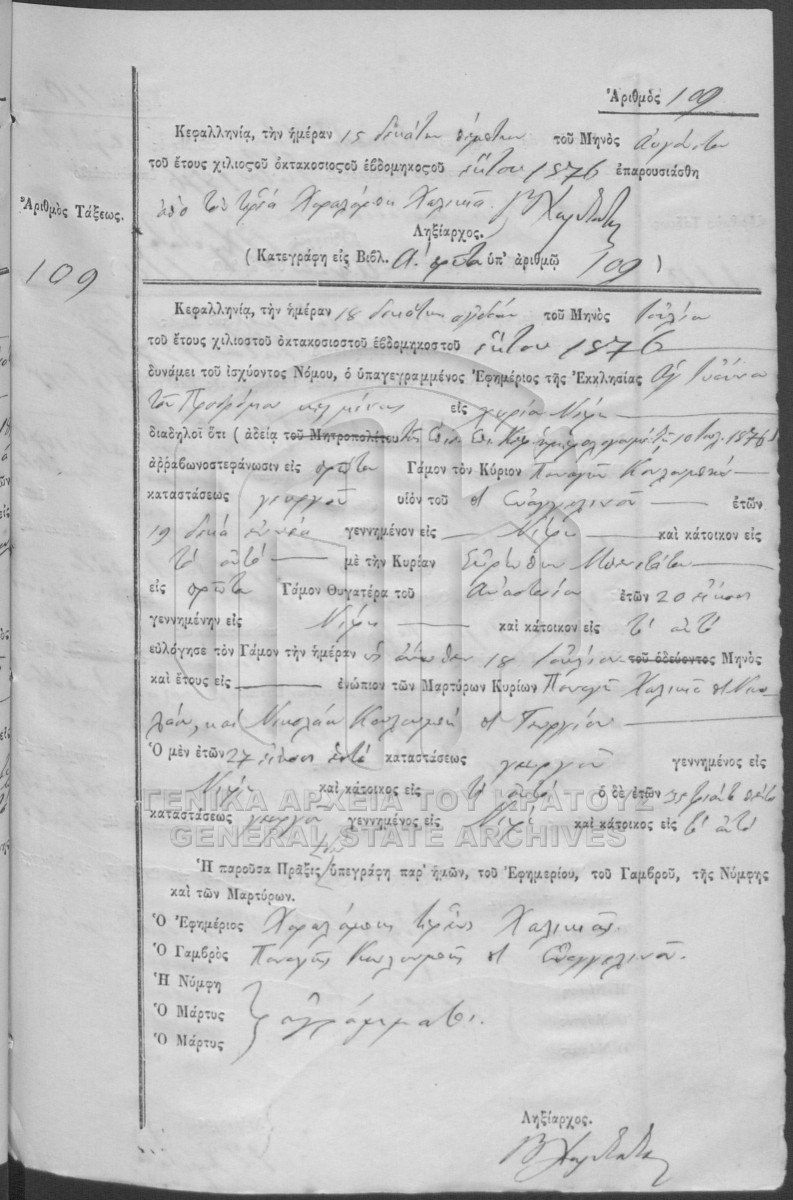 Ἀριθμὸς 109
Κεφαλληνίᾳ, τὴν ἡμέραν 15 δεκάτην πέμπτην τοῦ Μηνὸς Αὐγούστου
τοῦ ἔτους χιλιοςοῦ ὀκτακοσιοςοῦ ἑβδομηκοςοῦ ἕκτου 1876 ἐπαρουσιάσθη
Ἀριθμὸς Τάξεως.
ἀπὸ τὸν ἱερέα Χαραλάμπη Χαλικιᾶ.
Ληξίαρχος.
109
(Κατεγράφη εἰς Βιβλ. Α. πρῶτον ὑπ' ἀριθμῷ 109)
Κεφαλληνίᾳ, τὴν ἡμέραν 18 δεκάτην ὀγδόην τοῦ Μηνὸς Ἰουλίου
τοῦ ἔτους χιλιοστοῦ ὀκτακοσιοστοῦ ἑβδομηκοστοῦ ἕκτου 1876
δυνάμει τοῦ ἰσχύοντος Νόμου, ὁ ὑπαγεγραμμένος Ἐφημέριος τῆς Ἐκκλησίας Ἁγ Ἰωάννου
τοῦ Προδρόμου κειμένης εἰς χωρίον Νύφι
διαδηλοῖ ὅτι (ἀδείᾳ τοῦ Μητροπολίτου 10 Ἰουλ. 1876)
ἀῤῥαβωνοστεφάνωσιν εἰς πρῶτον Γάμον τὸν Κύριον Παναγῆν Κουλουμπῆν
καταστάσεως γεωργοῦ υἱὸν τοῦ Εὐαγγελινοῦ ἐτῶν
19 δεκα εννέα γεννημένον εἰς Νύφι καὶ κάτοικον εἰς
τὸ αὐτὸ μὲ τὴν Κυρίαν
εἰς πρῶτον Γάμον Θυγατέρα τοῦ Ἀναστασίου ἐτῶν 20 εἴκοσι
γεννημένην εἰς Νύφι καὶ κάτοικον εἰς τὸ αὐτὸ
εὐλόγησε τὸν Γάμον τὴν ἡμέραν ὡς ἄνωθεν 18 Ἰουλίου τοῦ ὁδεύοντος Μηνὸς
καὶ ἔτους εἰς ἐνώπιον τῶν Μαρτύρων Κυρίων Παναγῆ Χαλικιᾶ Νικο
λάου, καὶ Νικολάου Κουλουμπῆ Γεωργίου
Ὁ μὲν ἐτῶν 27 εἴκοσι ἑπτὰ καταστάσεως γεωργοῦ γεννημένος εἰς
Νύφι καὶ κάτοικος εἰς τὸ αὐτὸ ὁ δὲ ἐτῶν 35 τριάντα πέντε
καταστάσεως γεωργοῦ γεννημένος εἰς Νύφι καὶ κάτοικος εἰς τὸ αὐτὸ
ΓΕΝΙΚΑ ΑΡΧΕΙΑ ΤΟΥ ΚΡΑΤΟΥΣ
GENERAL STATE ARCHIVES
Ἡ παροῦσα Πρᾶξις ὑπεγράφη παρ' ἡμῶν, τοῦ Ἐφημερίου, τοῦ Γαμβροῦ, τῆς Νύμφης
καὶ τῶν Μαρτύρων.
Ὁ Ἐφημέριος Χαραλάμπης ἱερεὺς Χαλικιᾶς.
Ὁ Γαμβρὸς Παναγῆς Κουλουμπῆς Εὐαγγελινοῦ.
Ἡ Νύμφη
Ὁ Μάρτυς ἀγράμματοι.
Ὁ Μάρτυς
Ληξίαρχος.